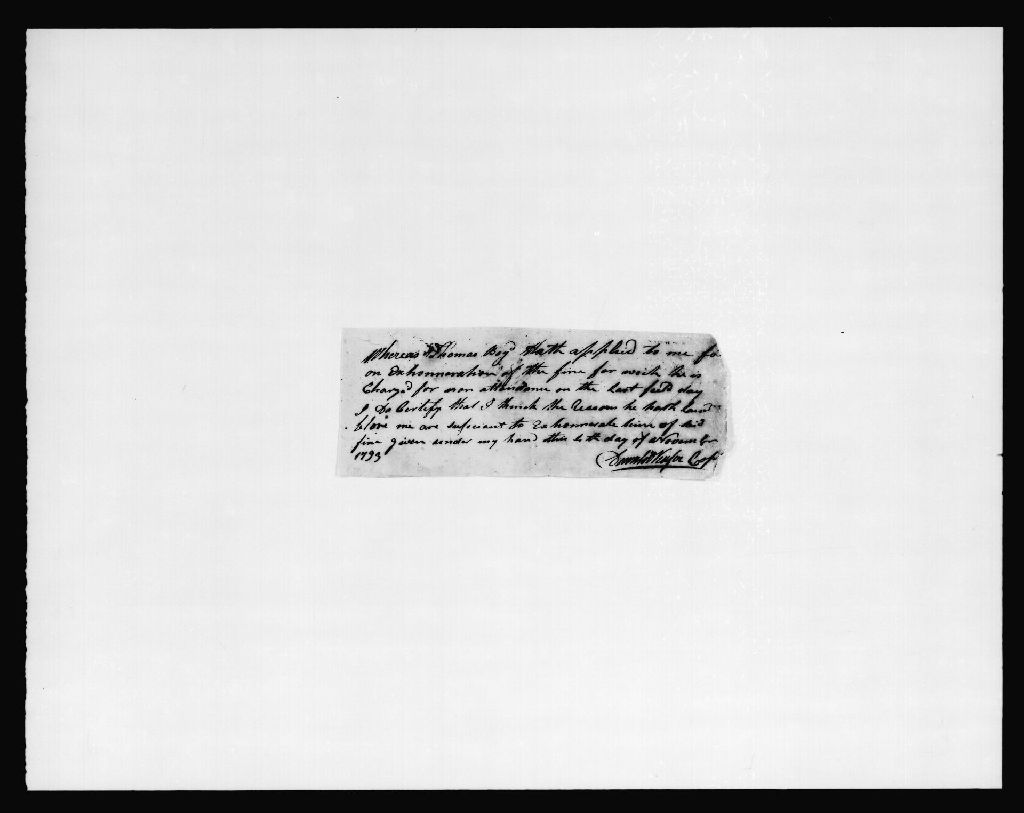 Whereas Thomas Boyd Hath applied to me for
on Exhonneration of the fine for wich he is
Charged for non attendance on the last field day
I Do Certify that I think the Reasons he hath laid
before me are suficient to Exhonnerate him of said
fine given under my hand this 4th day of November
1793